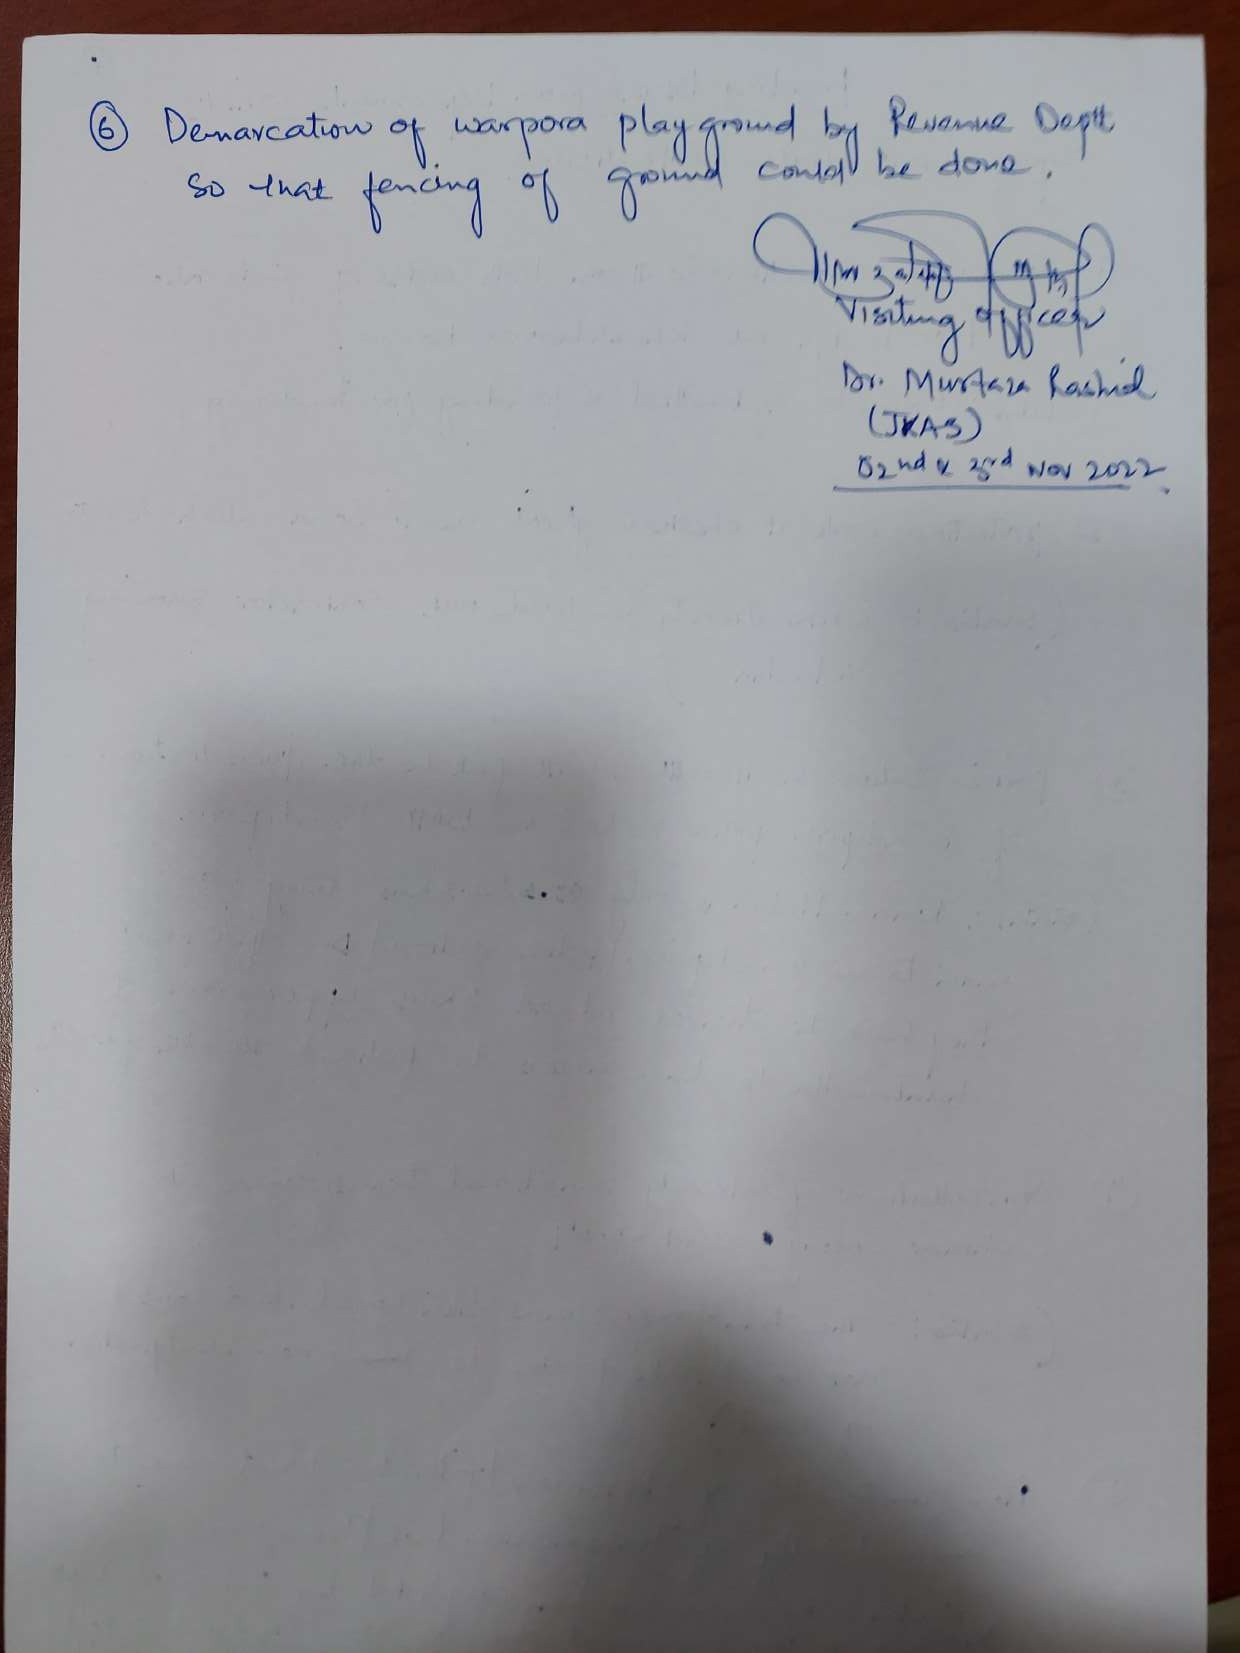 6 Demarcation of warpora play ground by Revenue Deptt
so that fencing of ground could be done.
Visiting officer
Dr. Murtaza Rashid
(JKAS)
02nd & 3rd Nov 2022